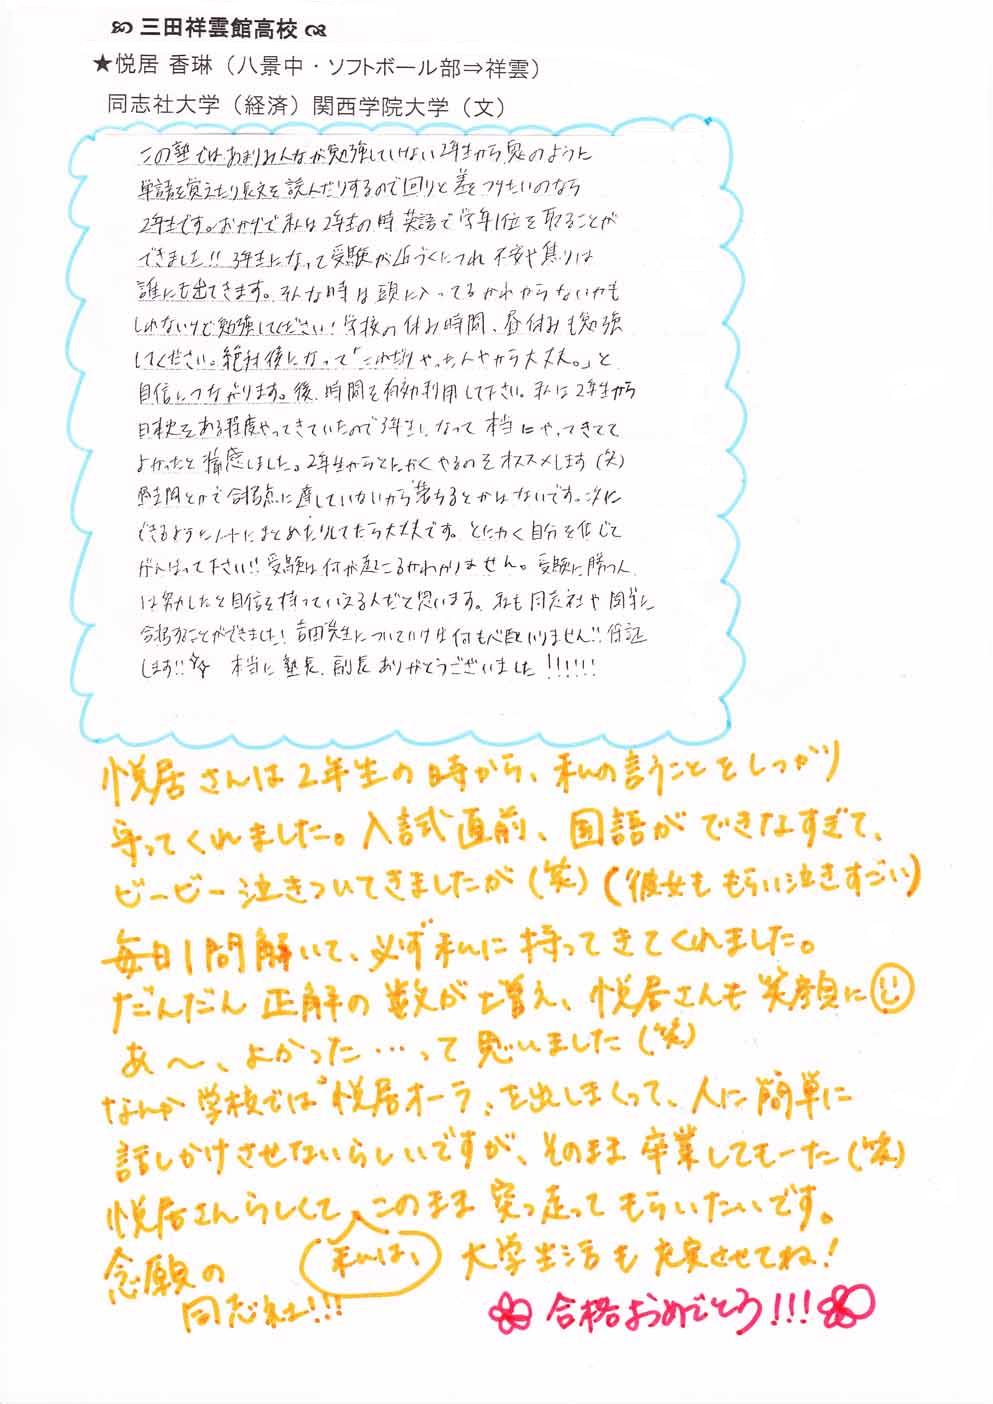 三田祥雲館高校
★悦居 香琳（八景中・ソフトボール部⇒祥雲）
同志社大学（経済）関西学院大学（文）
この塾ではあまりみんなが勉強していない2年生から鬼のように
単語を覚えたり長文を読んだりするので回りと差をつけたいのなら
2年生です。おかげで私は2年生の時英語で学年1位を取ることが
できました!! 3年生になって受験が近づくにつれ不安や焦りは
誰にも出てきます。そんな時は頭に入ってるかわからないかも
しれないけど勉強してください！学校の休み時間、昼休みも勉強
してください。絶対後になって「これだけやったんやから大丈夫。」と
自信につながります。後、時間を有効利用して下さい。私は2年生から
日本史をある程度やってきていたので3年生になって本当にやってきてて
よかったと痛感しました。2年生からとにかくやるのをオススメします（笑）
過去問とかで合格点に達していないから落ちるとかはないです。次に
できるようにノートにまとめたりしてたら大丈夫です。とにかく自分を信じて
がんばって下さい!! 受験は何が起こるかわかりません。受験に勝つ人
は努力したと自信を持っていえる人だと思います。私も同志社や関学に
合格することができました！吉田先生についていけば何も心配いりません!! 保証
します!!☆ 本当に塾長、副長ありがとうございました!!!!!!
悦居さんは2年生の時から、私の言うことをしっかり
守ってくれました。入試直前、国語ができなすぎて、
ビービー泣きついてきましたが（笑）（彼女ももらい泣きすごい）
毎日1問解いて、必ず私に持ってきてくれました。
だんだん正解の数が増え、悦居さんも笑顔に
あ〜、よかった…って思いました（笑）
なんか学校では"悦居オーラ"を出しまくって、人に簡単に
話しかけさせないらしいですが、そのまま卒業してもーた（笑）
悦居さんらしくて、私は、このまま突っ走ってもらいたいです。
念願の
同志社!!!
大学生活も充実させてね！
合格おめでとう!!!